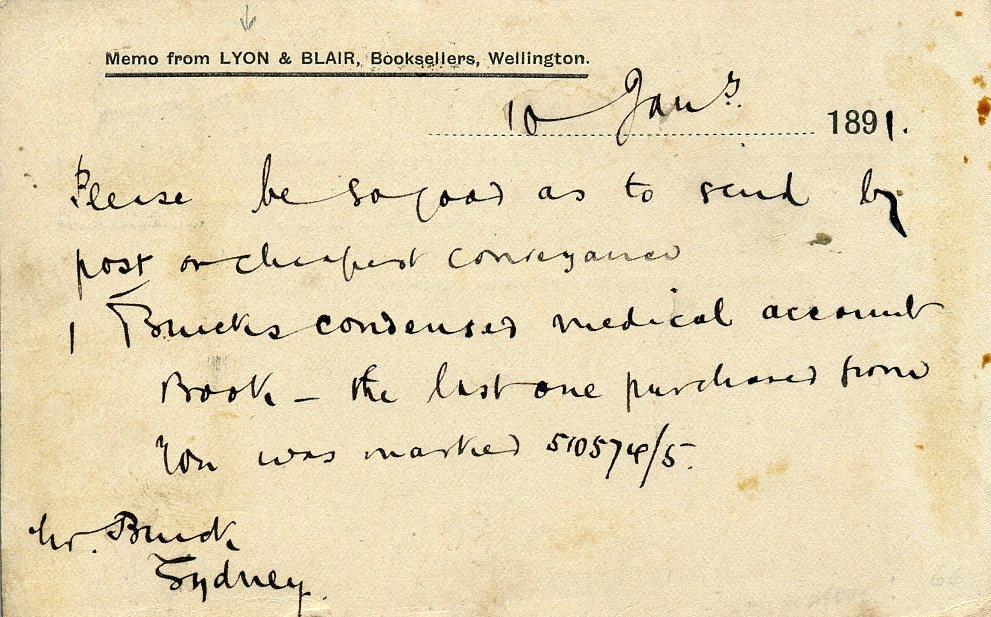 Memo from LYON & BLAIR, Booksellers, Wellington.
10 Jany. 1891.
Please be so good as to send by
post or cheapest conveyance
1 Bruck's condensed medical account
Book – the last one purchased from
You was marked 510574/5.
Mr. Bruck
Sydney.